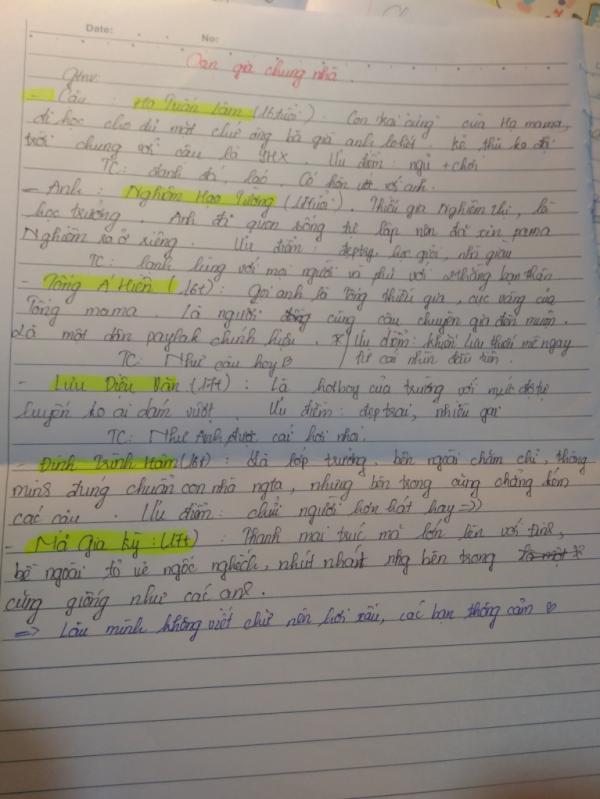 Date: No:
Oan gia chung nhà
Gtnv:
- Cậu : Hạ Tuấn Lâm (16tuổi). Con trai cùng của Hạ mama,
đi học cho dù một chữ ông bà già anh
trời chung với cậu là YHX . Ưu điểm : ngủ + chơi
TC: đanh đá, láo. Có hôn ước với anh.
- Anh : Nghiêm Hạo Tường (17tuổi). Thiếu gia Nghiêm thị, là
học trưởng . Anh đi quen sống tự lập nên đã xin pama
Nghiêm ra ở riêng . Ưu điểm : đẹptrai, học giỏi, nhà giàu
TC: lạnh lùng với mọi người và phũ với những bạn thân
- Tống Á Hiên (16t) : Gọi anh là Tống thiếu gia, cục vàng của
Tống mama . Là người cùng cậu chuyên gia đến muộn.
Là một dân paylak chính hiệu . Ưu điểm: khiến Lưu thiếu mê ngay
TC: Như cậu hoy từ cái nhìn đầu tiên.
- Lưu Diệu Văn (17t) : Là hotboy của trường với mức độ tự
luyến ko ai dám vượt . Ưu điểm : đẹp trai, nhiều gái
TC: Như Anh được cái hơi nhoi.
- Đinh Trình Hâm (18t) : Là lớp trưởng, bên ngoài chăm chỉ, thông
mins đúng chuẩn con nhà ngta, nhưng bên trong cũng chẳng kém
các cậu . Ưu điểm : chửi người hơn hát hay =))
- Mã Gia Kỳ : (17t) : Thanh mai trúc mã lớn lên với Đinh,
bề ngoài tỏ vẻ ngốc nghếch, nhút nhát nhg bên trong
cũng giống như các ans .
=> Lâu mình không viết chữ nên hơi xấu, các bạn thông cảm